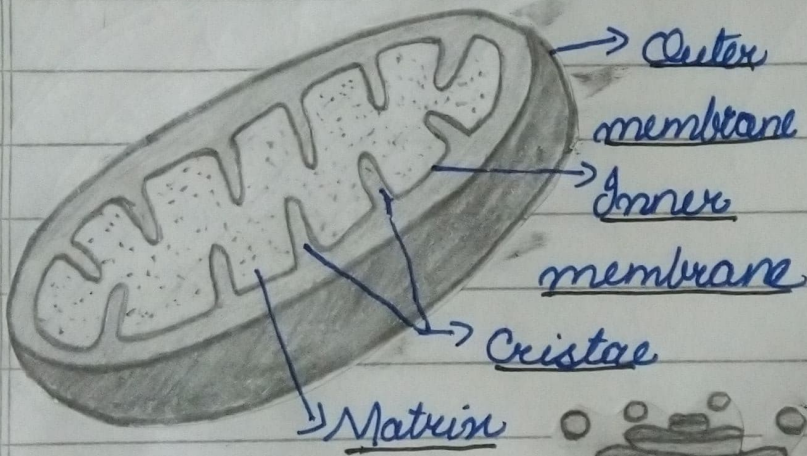 Outer
membrane
Inner
membrane
Cristae
Matrix